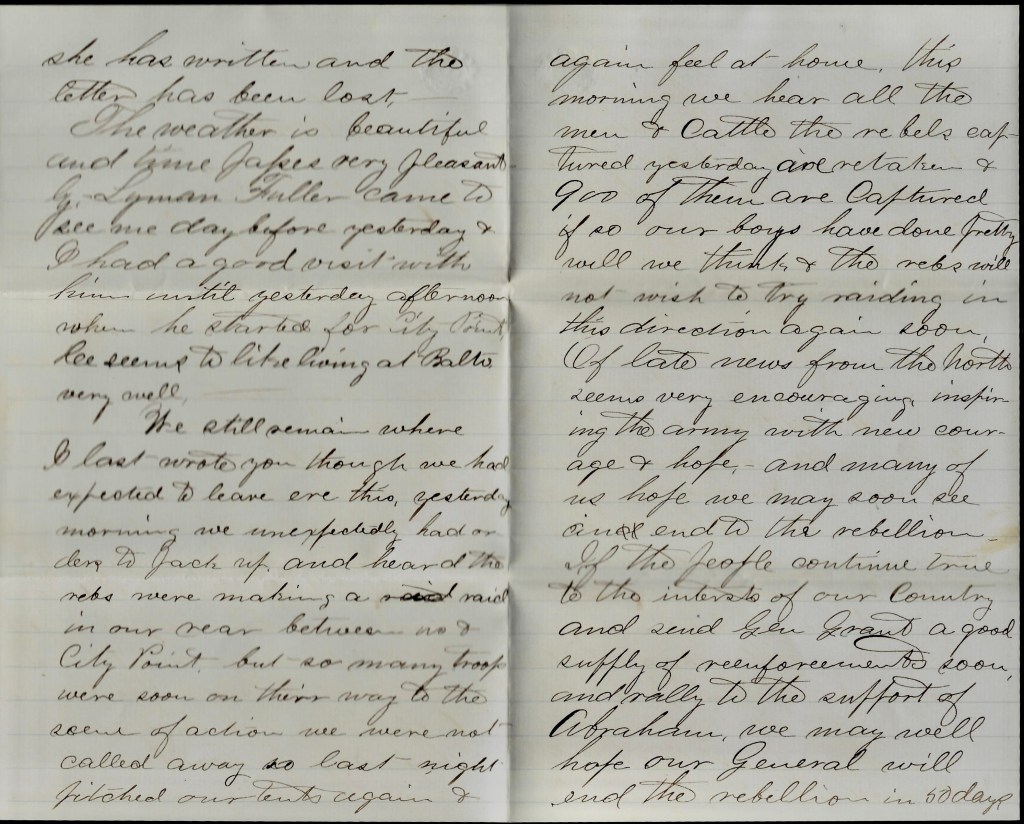 she has written and the
letter has been lost. —
The weather is beautiful
and time passes very pleasant-
ly. Lyman Fuller came to
see me day before yesterday &
I had a good visit with
him until yesterday afternoon
when he started for City Point,
he seems to like living at Balto
very well.
We still remain where
I last wrote you though we had
expected to leave ere this, yesterday
morning we unexpectedly had or
ders to pack up, and heard the
rebs were making a raid
in our rear between us &
City Point, but so many troops
were soon on their way to the
scene of action we were not
called away so last night
pitched our tents again &
again feel at home. This
morning we hear all the
men & Cattle the rebels cap-
tured yesterday are retaken &
900 of them are Captured
if so our boys have done pretty
well we think & the rebs will
not wish to try raiding in
this direction again soon.
Of late news from the North
seems very encouraging, inspir-
ing the army with new cour-
age & hope, - and many of
us hope we may soon see
an end to the rebellion -
If the people continue true
to the interests of our Country
and send Gen Grant a good
supply of reenforcements soon,
and rally to the support of
Abraham, we may well
hope our General will
end the rebellion in 50 days